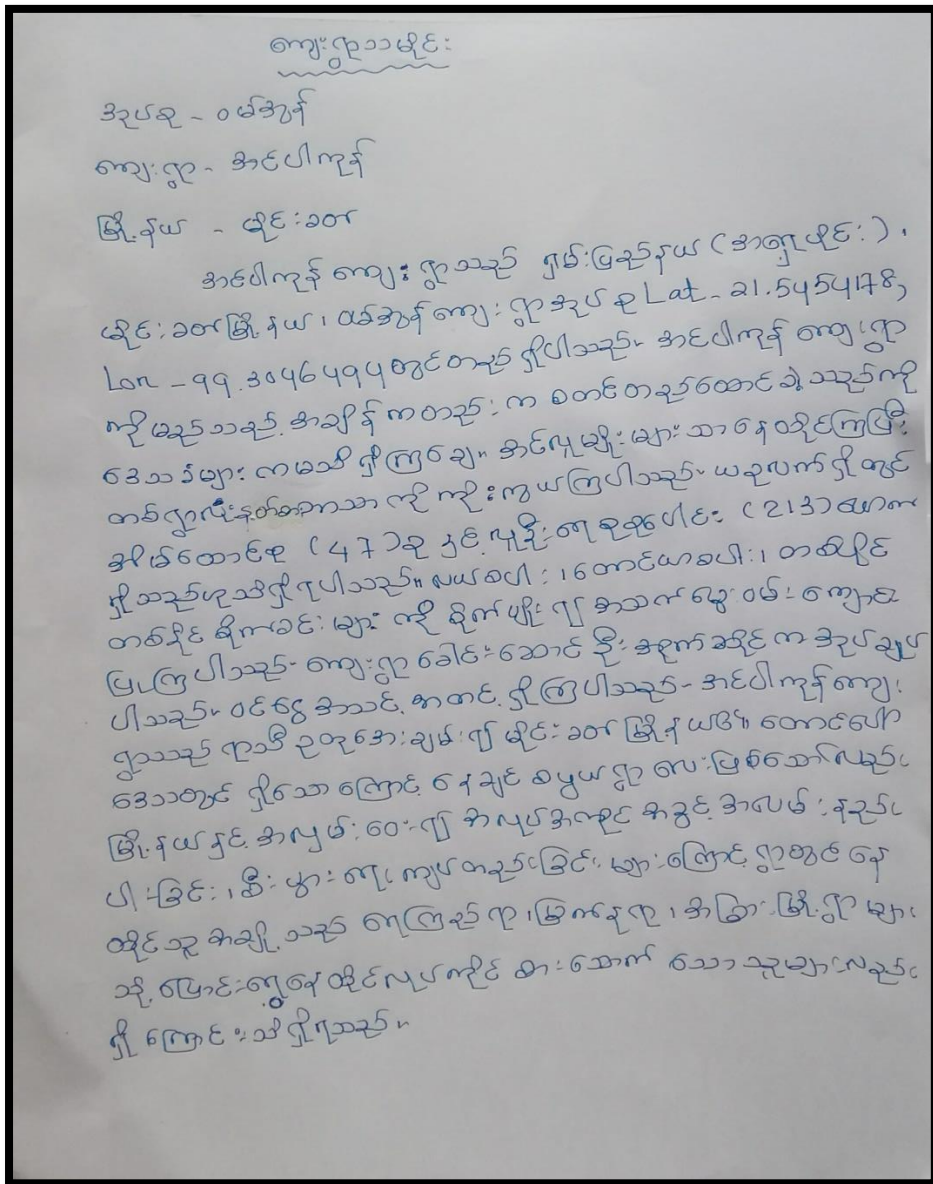 ကျေးရွာသမိုင်း
အုပ်စု - ဝမ်အွန်
ကျေးရွာ - အင်ပါကုန်
မြို့နယ် - မိုင်းခတ်
အင်ပါကုန် ကျေးရွာသည် ရှမ်းပြည်နယ် (အရှေ့ပိုင်း)၊
မိုင်းခတ်မြို့နယ်၊ ဝမ်အွန်ကျေးရွာအုပ်စု Lat - 21.5454178,
Lon - 99.3046494 တွင်တည်ရှိပါသည်။ အင်ပါကုန် ကျေးရွာ
ကို မည်သည့်အချိန်ကတည်းက စတင်တည်ထောင်ခဲ့သည်ကို
ဒေသခံများကမသိရှိကြချေ။ အင်လူမျိုးများသာနေထိုင်ကြပြီး
တစ်ရွာလုံးနတ်ဘာသာကို ကိုးကွယ်ကြပါသည်။ ယခုလက်ရှိတွင်
အိမ်ထောင်စု (47)စုနှင့် လူဦးရေစုစုပေါင်း (213)ယောက်
ရှိသည်ဟုသိရှိရပါသည်။ လယ်စပါး၊ တောင်ယာစပါး၊ တစ်ပိုင်
တစ်နိုင်စိုက်ခင်းများကို စိုက်ပျိုး၍ အသက်မွေးဝမ်းကျောင်း
ပြုကြပါသည်။ ကျေးရွာခေါင်းဆောင် ဦးအိုက်ဆိုင်ကအုပ်ချုပ်
ပါသည်။ ဝင်ငွေအသင့်အတင့်ရှိကြပါသည်။ အင်ပါကုန်ကျေး
ရွာသည် ရာသီဥတုအေးချမ်း၍ မိုင်းခတ်မြို့နယ်၏ တောင်ပေါ်
ဒေသတွင် ရှိသောကြောင့် နေချင်စဖွယ်ရွာလေးဖြစ်သော်လည်း
မြို့နယ်နှင့်အလှမ်းဝေး၍ အလုပ်အကိုင်အခွင့်အလမ်းနည်း
ပါးခြင်း၊ စီးပွားရေးကျပ်တည်းခြင်းများကြောင့် ရွာတွင်နေ
ထိုင်သူအချို့သည် ရေကြည်ရာ၊ မြက်နုရာ၊ အခြားမြို့ရွာများ
သို့ပြောင်းရွှေ့နေထိုင်လုပ်ကိုင်စားသောက်သောသူများလည်း
ရှိကြောင်းသိရှိရသည်။